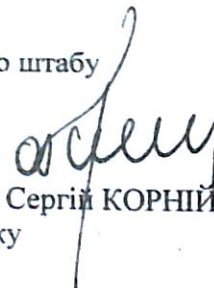 о штабу
Сергій КОРНІЙ
ку